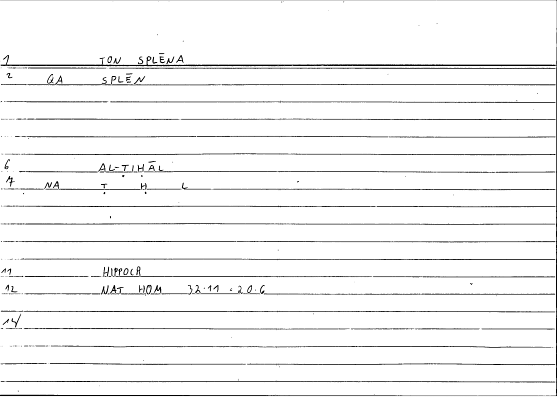 1 TON SPLĒNA
2 GA SPLĒN
6 AL-ṬIḤĀL
7 NA Ṭ Ḥ L
11 HIPPOCR
12 NAT HOM 32.11 . 20.6
14